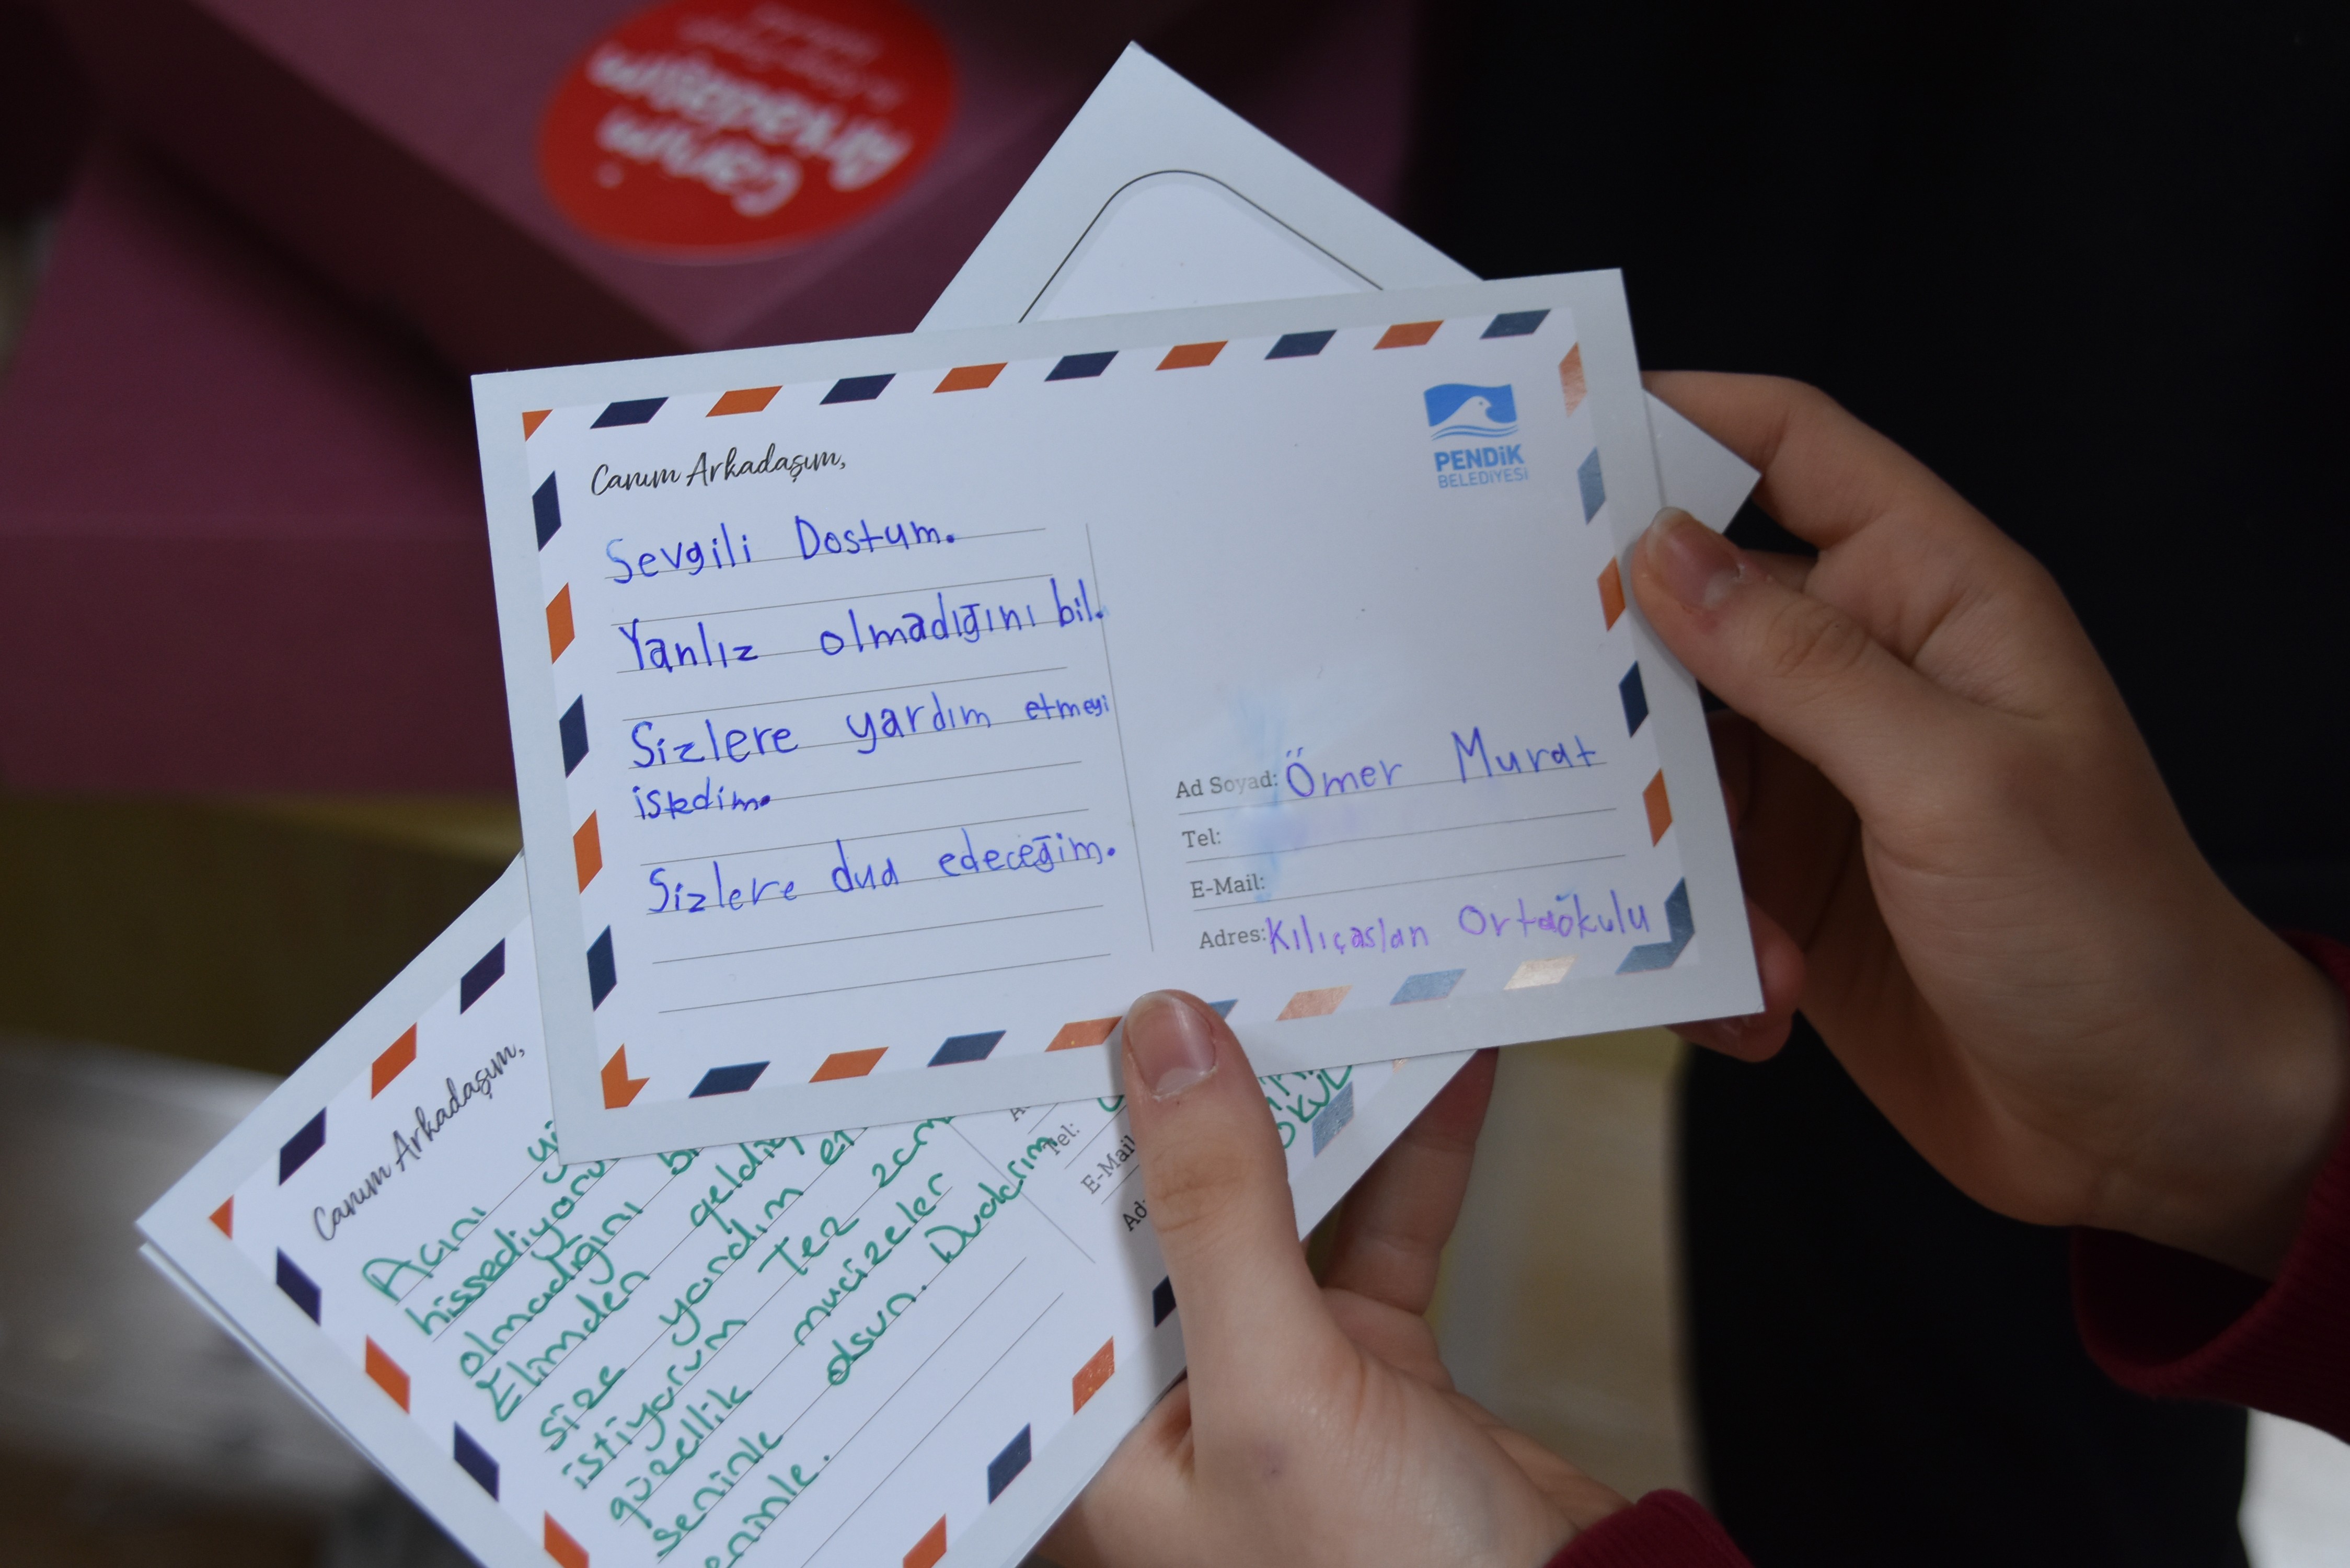 Canım
Arkadaşım
Canım Arkadaşım,
PENDİK
BELEDİYESİ
Sevgili Dostum.
Yanlız olmadığını bil.
Sizlere yardım etmeyi
istedim.
Sizlere dua edeceğim.
Ad Soyad: Ömer Murat
Tel:
E-Mail:
Adres: Kılıçaslan Ortaökulu
Canım Arkadaşım,
Acını
hissediyoru
olmadığını
Elimden geldiğ
size yardım et
istiyorum Tez zam
güzellik mucizeler
seninle olsun. Dualarım
Tel:
E-Mail
Ad